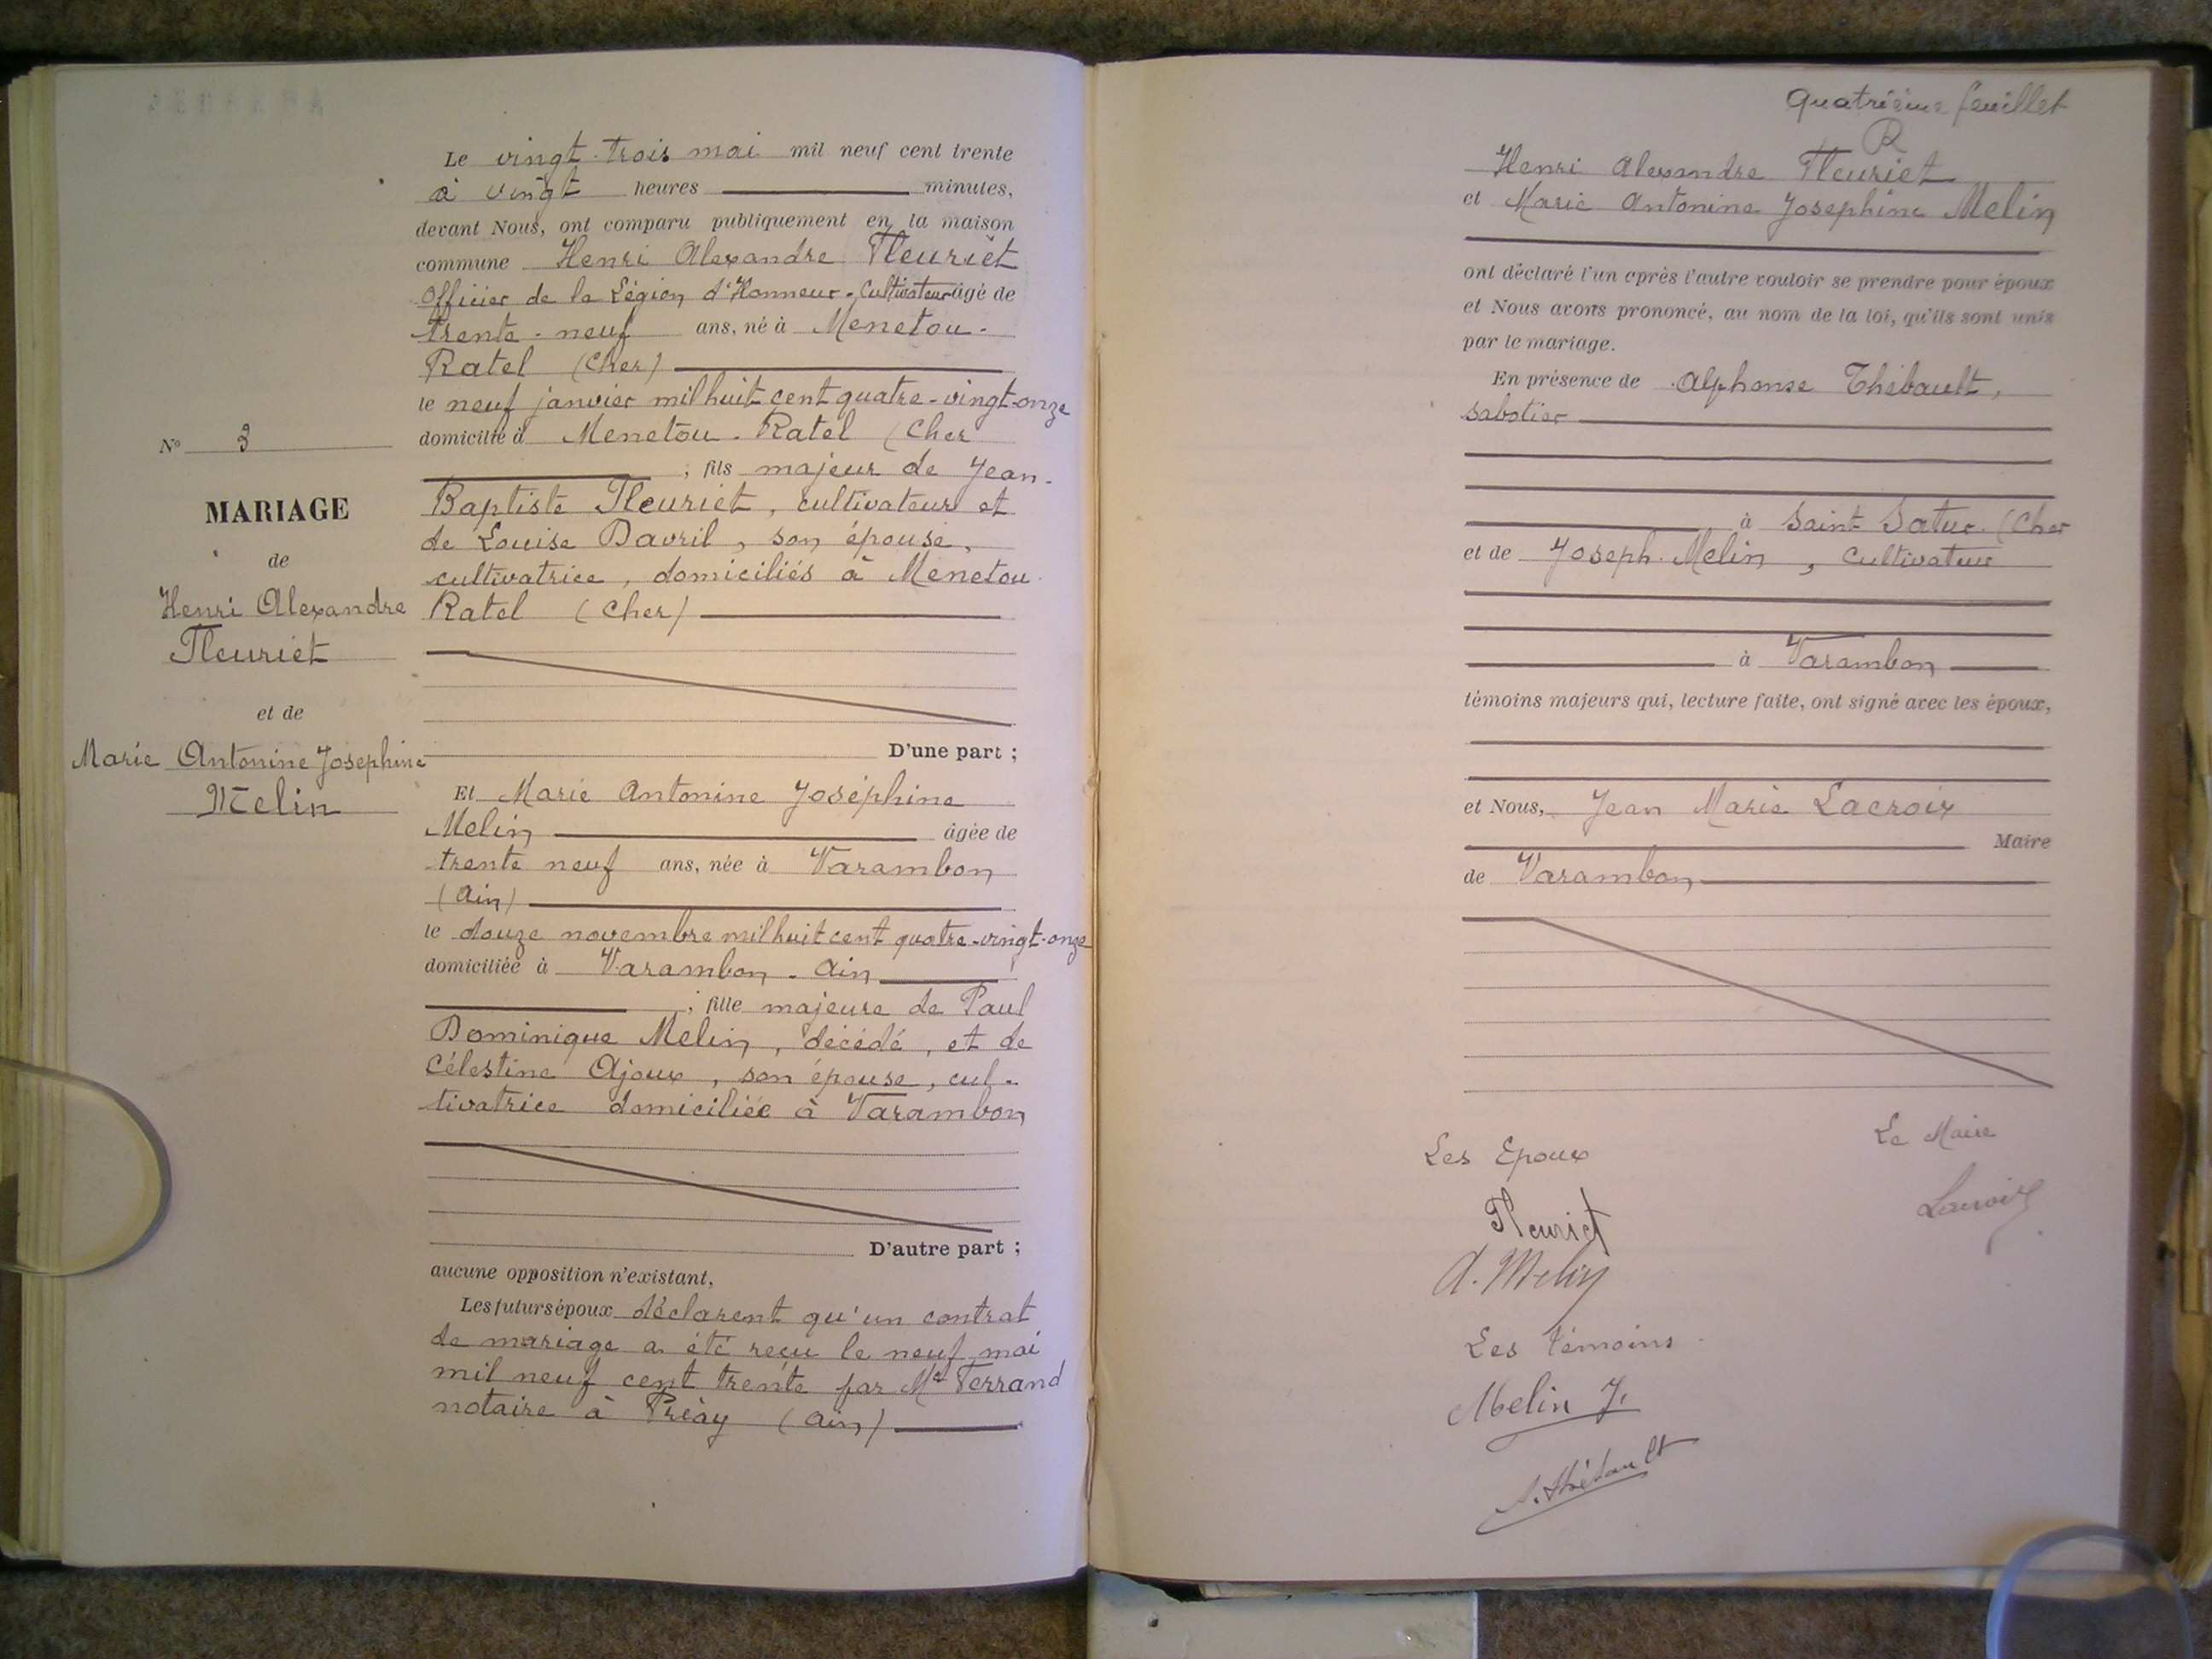 Le vingt-trois mai mil neuf cent trente
à vingt heures minutes,
devant Nous, ont comparu publiquement en la maison
commune Henri Alexandre Fleuriet
Officier de la Légion d'Honneur - Cultivateur âgé de
trente-neuf ans, né à Menetou-
Ratel (Cher)
le neuf janvier mil huit cent quatre-vingt-onze
domicilié à Menetou-Ratel (Cher
; fils majeur de Jean-
Baptiste Fleuriet, cultivateur et
de Louise Davril, son épouse,
cultivatrice, domiciliés à Menetou-
Ratel (Cher)
D'une part ;
Et Marie Antonine Joséphine
Melin âgée de
trente neuf ans, née à Varambon
(Ain)
le douze novembre mil huit cent quatre-vingt-onze
domiciliée à Varambon - Ain
; fille majeure de Paul
Dominique Melin, décédé, et de
Célestine Ajoux, son épouse, cul-
tivatrice domiciliée à Varambon
D'autre part ;
aucune opposition n'existant,
Les futurs époux déclarent qu'un contrat
de mariage a été reçu le neuf mai
mil neuf cent trente par Me Ferrand
notaire à Priay (Ain)
N° 3
MARIAGE
de
Henri Alexandre
Fleuriet
et de
Marie Antonine Josephine
Melin
Quatrième feuillet
R
Henri Alexandre Fleuriet
et Marie Antonine Josephine Melin
ont déclaré l'un après l'autre vouloir se prendre pour époux
et Nous avons prononcé, au nom de la loi, qu'ils sont unis
par le mariage.
En présence de Alphonse Thébault,
sabotier
à Saint Satur (Cher
et de Joseph Melin, Cultivateur
à Varambon
témoins majeurs qui, lecture faite, ont signé avec les époux,
et Nous, Jean Marie Lacroix
Maire
de Varambon
Les Epoux
Le Maire
Fleuriet
Lacroix
A. Melin
Les témoins
Melin J.
A. Thébault